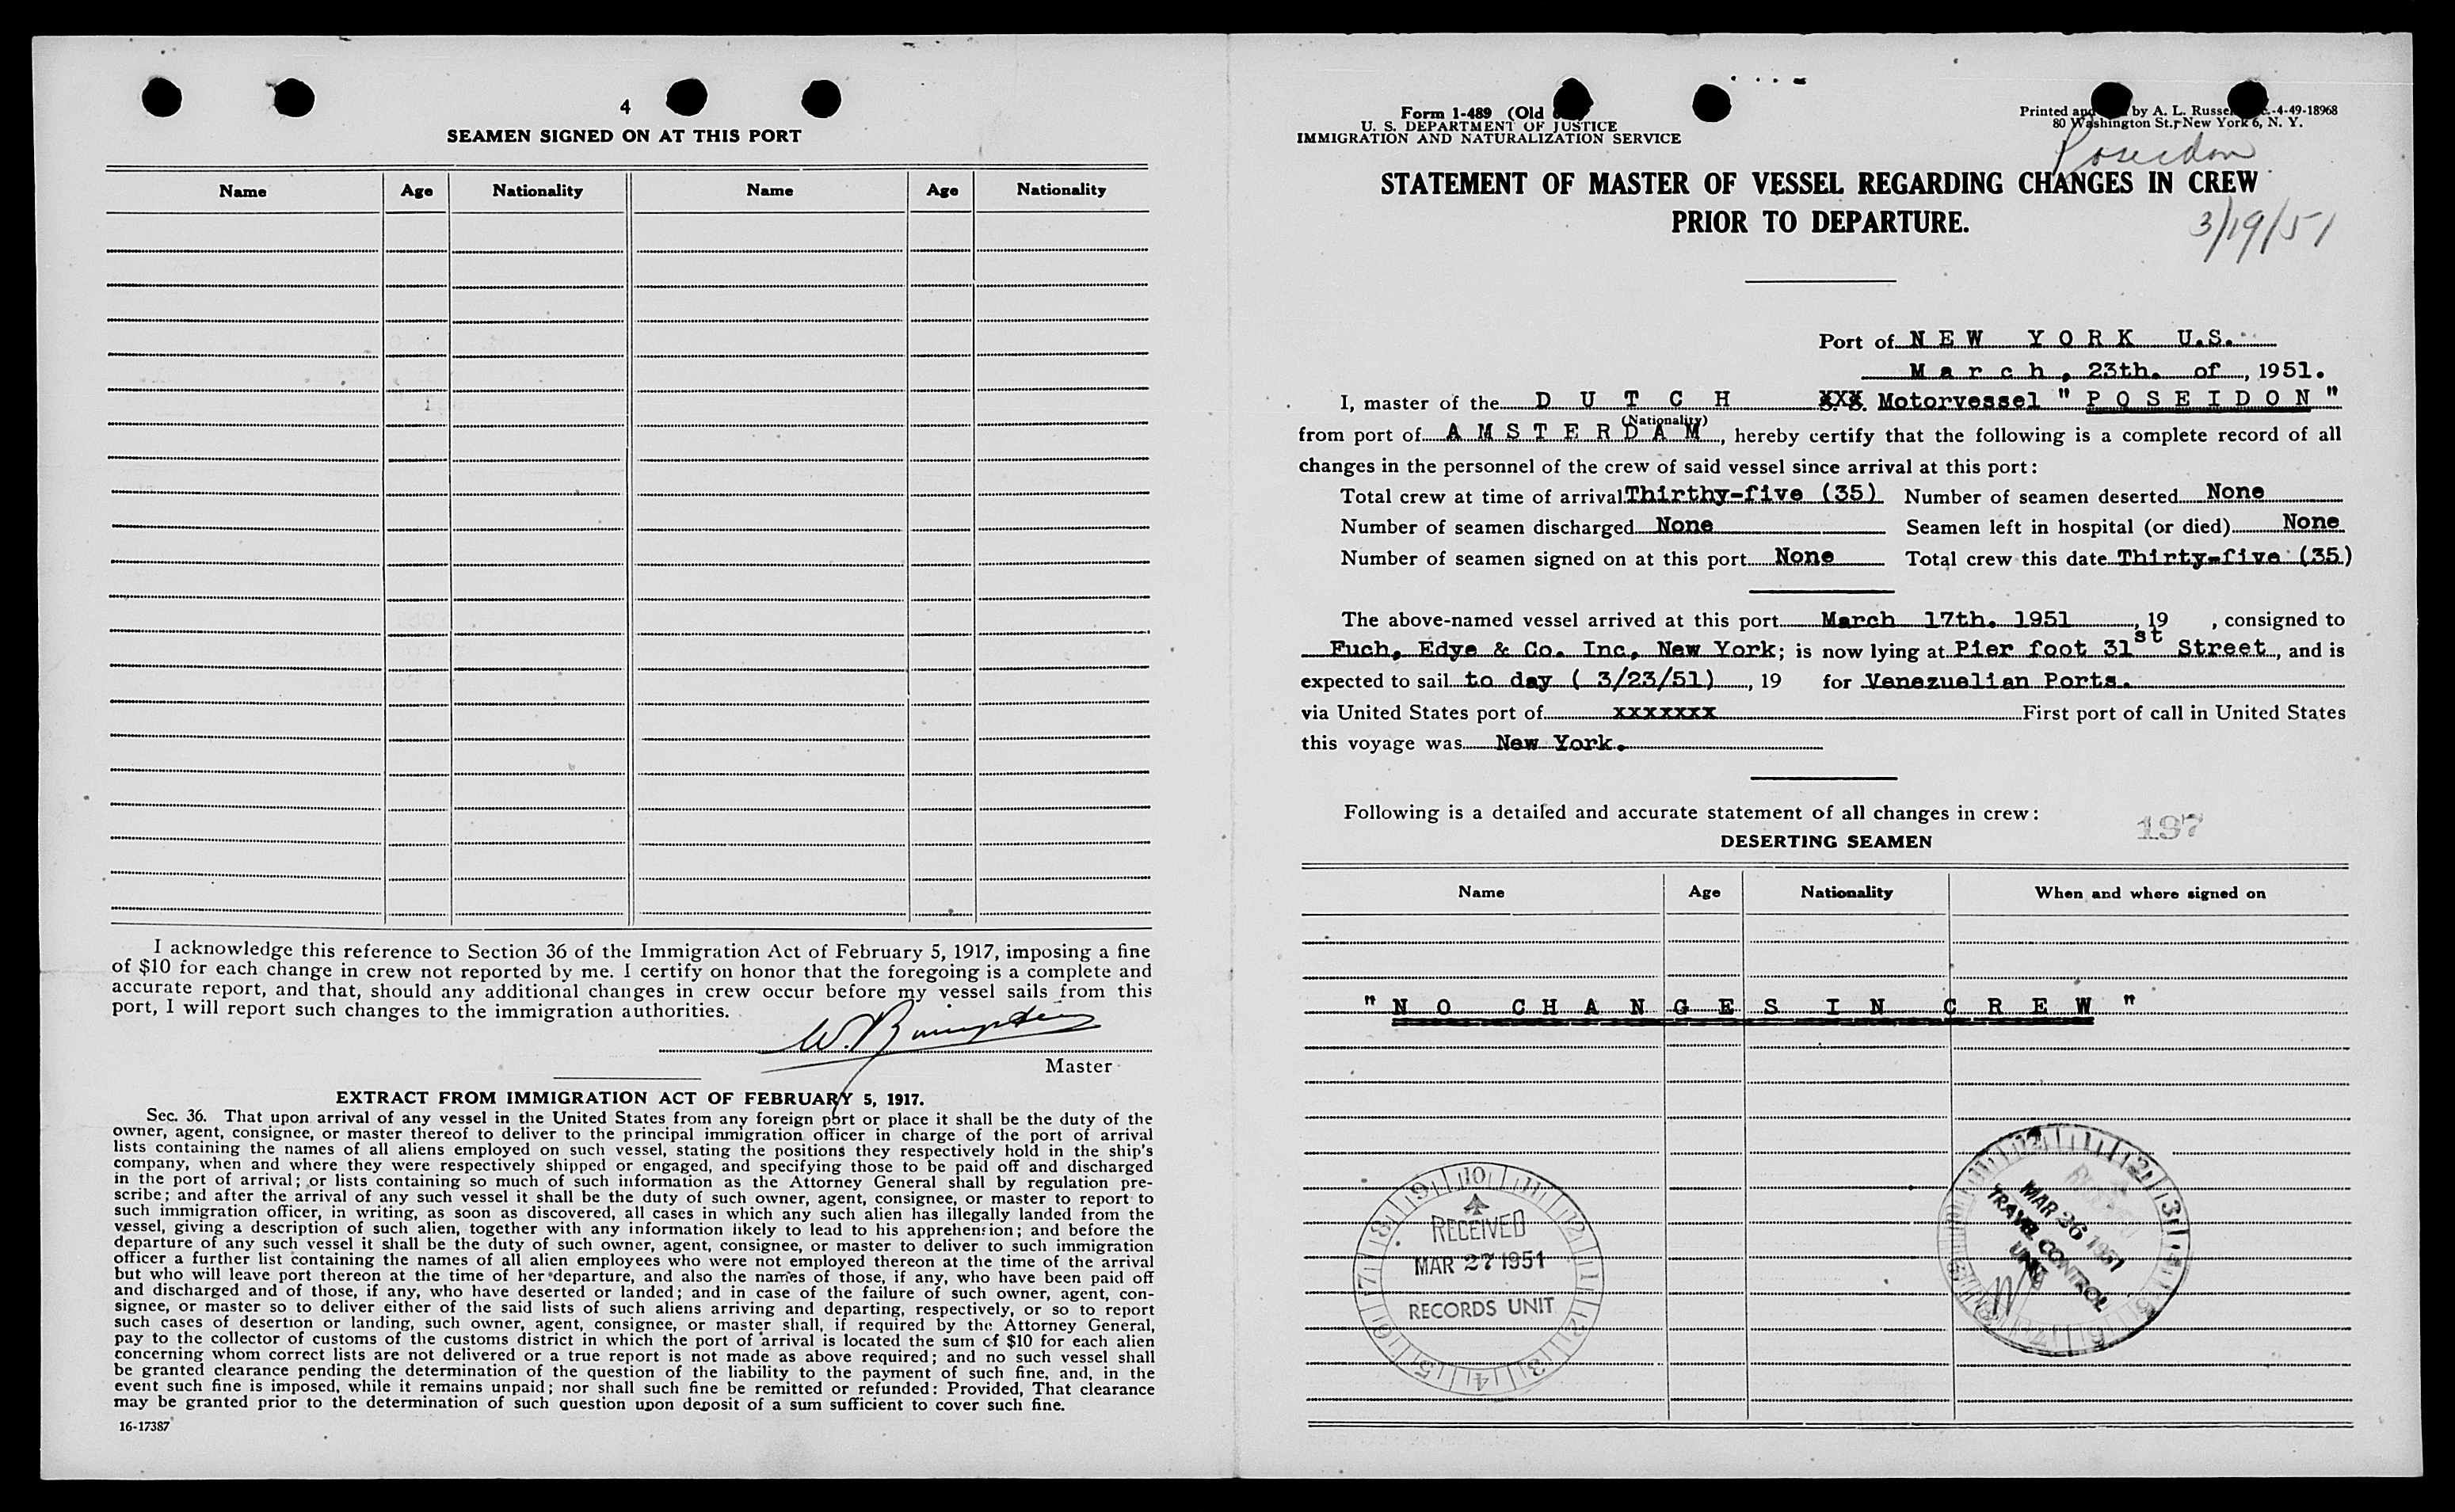 4
SEAMEN SIGNED ON AT THIS PORT
Name Age Nationality Name Age Nationality
I acknowledge this reference to Section 36 of the Immigration Act of February 5, 1917, imposing a fine
of $10 for each change in crew not reported by me. I certify on honor that the foregoing is a complete and
accurate report, and that, should any additional changes in crew occur before my vessel sails from this
port, I will report such changes to the immigration authorities.
W.
Master
EXTRACT FROM IMMIGRATION ACT OF FEBRUARY 5, 1917.
Sec. 36. That upon arrival of any vessel in the United States from any foreign port or place it shall be the duty of the
owner, agent, consignee, or master thereof to deliver to the principal immigration officer in charge of the port of arrival
lists containing the names of all aliens employed on such vessel, stating the positions they respectively hold in the ship's
company, when and where they were respectively shipped or engaged, and specifying those to be paid off and discharged
in the port of arrival; or lists containing so much of such information as the Attorney General shall by regulation pre-
scribe; and after the arrival of any such vessel it shall be the duty of such owner, agent, consignee, or master to report to
such immigration officer, in writing, as soon as discovered, all cases in which any such alien has illegally landed from the
vessel, giving a description of such alien, together with any information likely to lead to his apprehension; and before the
departure of any such vessel it shall be the duty of such owner, agent, consignee, or master to deliver to such immigration
officer a further list containing the names of all alien employees who were not employed thereon at the time of the arrival
but who will leave port thereon at the time of her departure, and also the names of those, if any, who have been paid off
and discharged and of those, if any, who have deserted or landed; and in case of the failure of such owner, agent, con-
signee, or master so to deliver either of the said lists of such aliens arriving and departing, respectively, or so to report
such cases of desertion or landing, such owner, agent, consignee, or master shall, if required by the Attorney General,
pay to the collector of customs of the customs district in which the port of arrival is located the sum of $10 for each alien
concerning whom correct lists are not delivered or a true report is not made as above required; and no such vessel shall
be granted clearance pending the determination of the question of the liability to the payment of such fine, and, in the
event such fine is imposed, while it remains unpaid; nor shall such fine be remitted or refunded: Provided, That clearance
may be granted prior to the determination of such question upon deposit of a sum sufficient to cover such fine.
16-17387
Form 1-489 (Old
U. S. DEPARTMENT OF JUSTICE
IMMIGRATION AND NATURALIZATION SERVICE
Printed by A. L. -4-49-18968
80 Washington St., New York 6, N. Y.
Poseidon
STATEMENT OF MASTER OF VESSEL REGARDING CHANGES IN CREW
PRIOR TO DEPARTURE.
3/19/51
Port of NEW YORK U.S.
March, 23th. of, 1951.
I, master of the DUTCH XXX Motorvessel "POSEIDON"
(Nationality)
from port of AMSTERDAM, hereby certify that the following is a complete record of all
changes in the personnel of the crew of said vessel since arrival at this port:
Total crew at time of arrival Thirthy-five (35) Number of seamen deserted None
Number of seamen discharged None Seamen left in hospital (or died) None
Number of seamen signed on at this port None Total crew this date Thirty-five (35)
The above-named vessel arrived at this port March 17th. 1951, 19 , consigned to
Fuch, Edye & Co. Inc, New York; is now lying at Pier foot 31st Street, and is
expected to sail to day ( 3/23/51), 19 for Venezuelian Ports.
via United States port of xxxxxxx First port of call in United States
this voyage was New York.
Following is a detailed and accurate statement of all changes in crew:
197
DESERTING SEAMEN
Name Age Nationality When and where signed on
"NO CHANGES IN CREW"
RECEIVED
MAR 27 1951
RECORDS UNIT
MAR 26 1951
TRAVEL CONTROL
UNIT